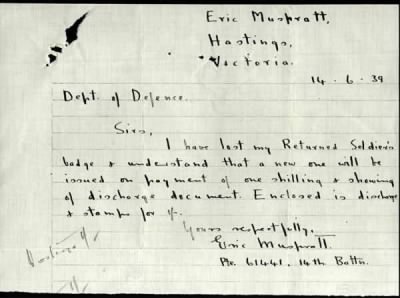 Eric Muspratt,
Hastings,
Victoria.
14.6.39
Dept. of Defence.
Sirs,
I have lost my Returned Soldier's
badge & understand that a new one will be
issued on payment of one shilling & showing
of discharge document. Enclosed is discharge
& stamps for 1/-.
Yours respectfully,
Eric Muspratt.
Pte. 61441. 14th Battn.